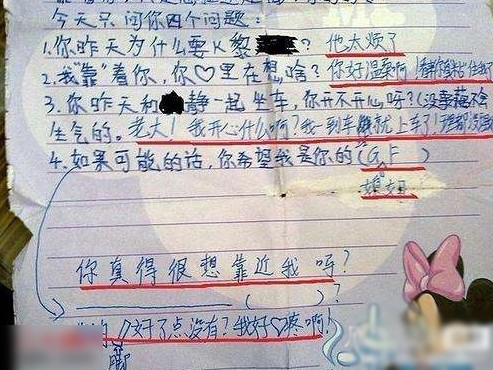 今天只问你四个问题：
1.你昨天为什么要K黎？他太烦了
2.我"靠"着你，你♡里在想啥？你好温柔啊！
3.你昨天和静一起坐车，你开不开心呀？(没事我不会
生气的。老大！我开心什么啊？我一到车就上车了！
4.如果可能的话，你希望我是你的(G.F)
姐姐
你真得很想靠近我吗？
()？
好了点没有？我好♡疼啊！
脚